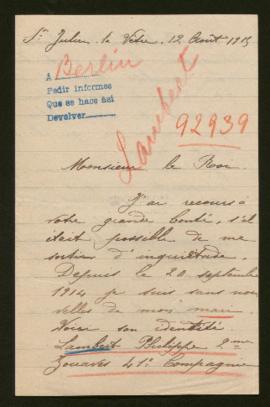 St Julien la Vêtre, 12 Août 1915
A Berlin
Pedir informes
Que se hace así
Devolver
Lambert
92939
Monsieur le Roi
J'ai recours à
votre grande bonté, s'il
était possible de me
sortir d'inquiétude.
Depuis le 20 septembre
1914 je suis sans nou
velles de mon mari
Voici son identité
Lambert Philippe 2me
Zouaves 41e Compagnie